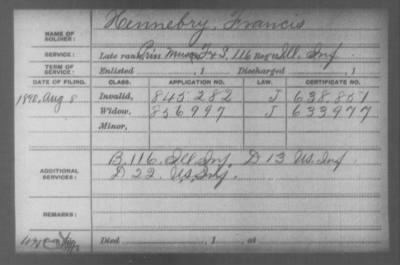 NAME OF SOLDIER: Hennebry, Francis
SERVICE: Late rank Prin. Music F&S, 116 Reg't Ill. Inf
TERM OF SERVICE: Enlisted , 1 Discharged , 1
DATE OF FILING. CLASS. APPLICATION NO. LAW. CERTIFICATE NO.
1890, Aug 8 Invalid, 845282 J 638.851
Widow, 856997 J 633977
Minor,
ADDITIONAL SERVICES: B. 116. Ill Inf. D 13 US. Inf
D 22. US. Inf.
REMARKS:
Died , 1 , at